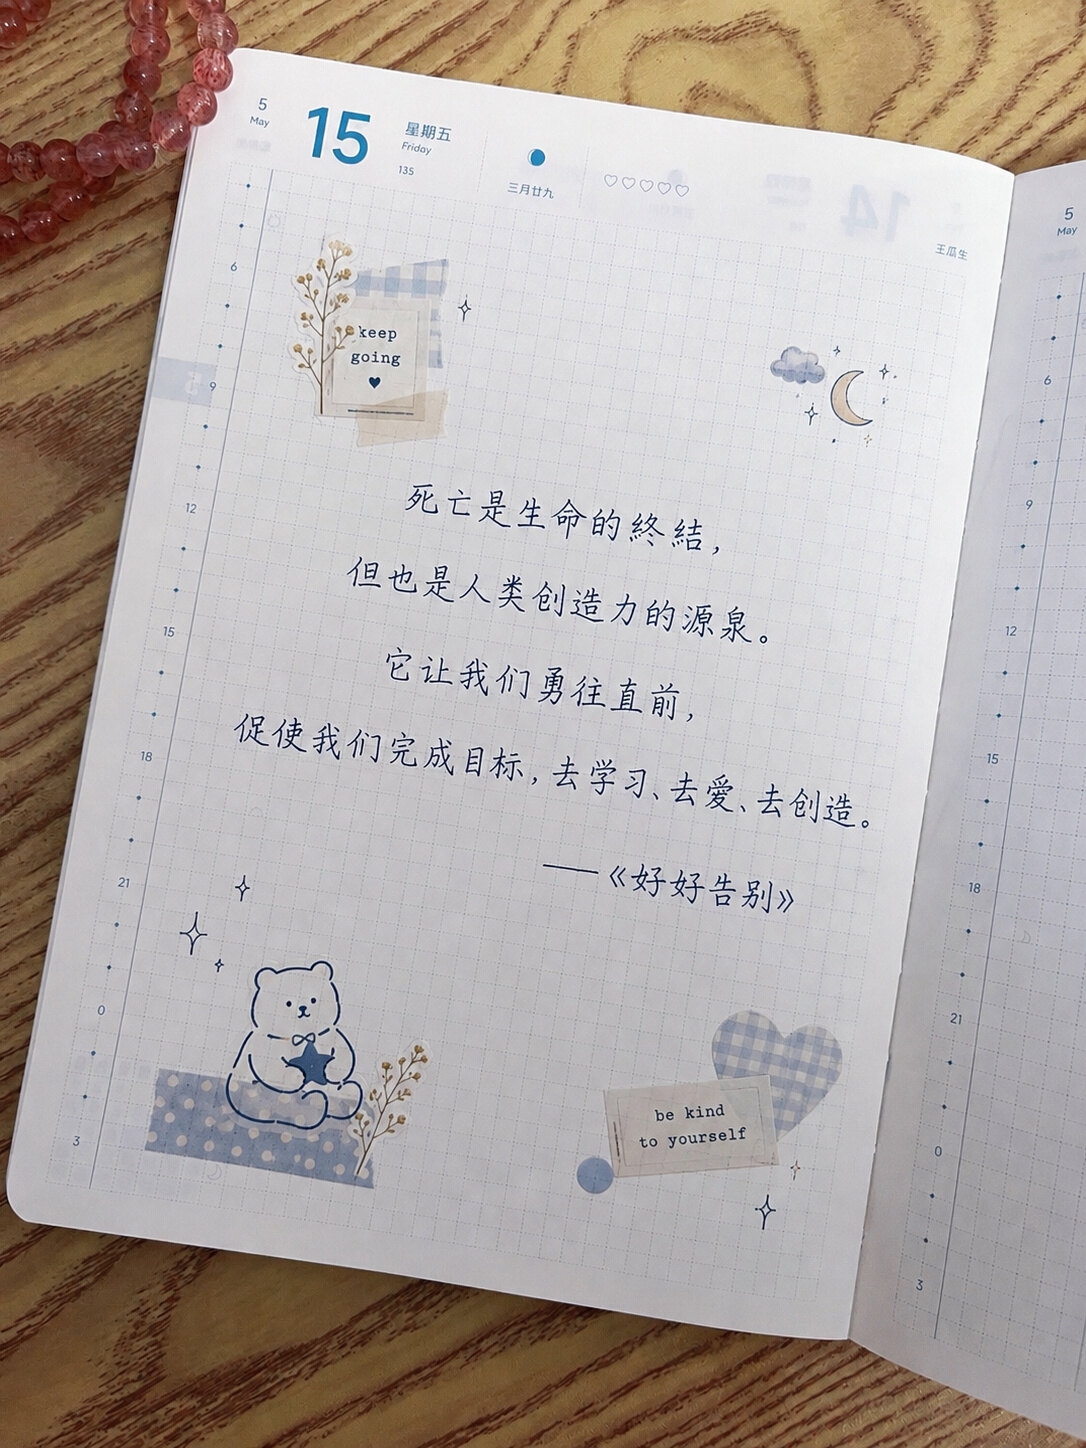 5
May
15
星期五
Friday
135
三月廿九
♡♡♡♡♡
王瓜生
keep
going
死亡是生命的終結，
但也是人类创造力的源泉。
它让我们勇往直前，
促使我们完成目标，去学习、去愛、去创造。
——《好好告别》
be kind
to yourself
6
9
12
15
18
21
0
3
5
May
6
9
12
15
18
21
0
3